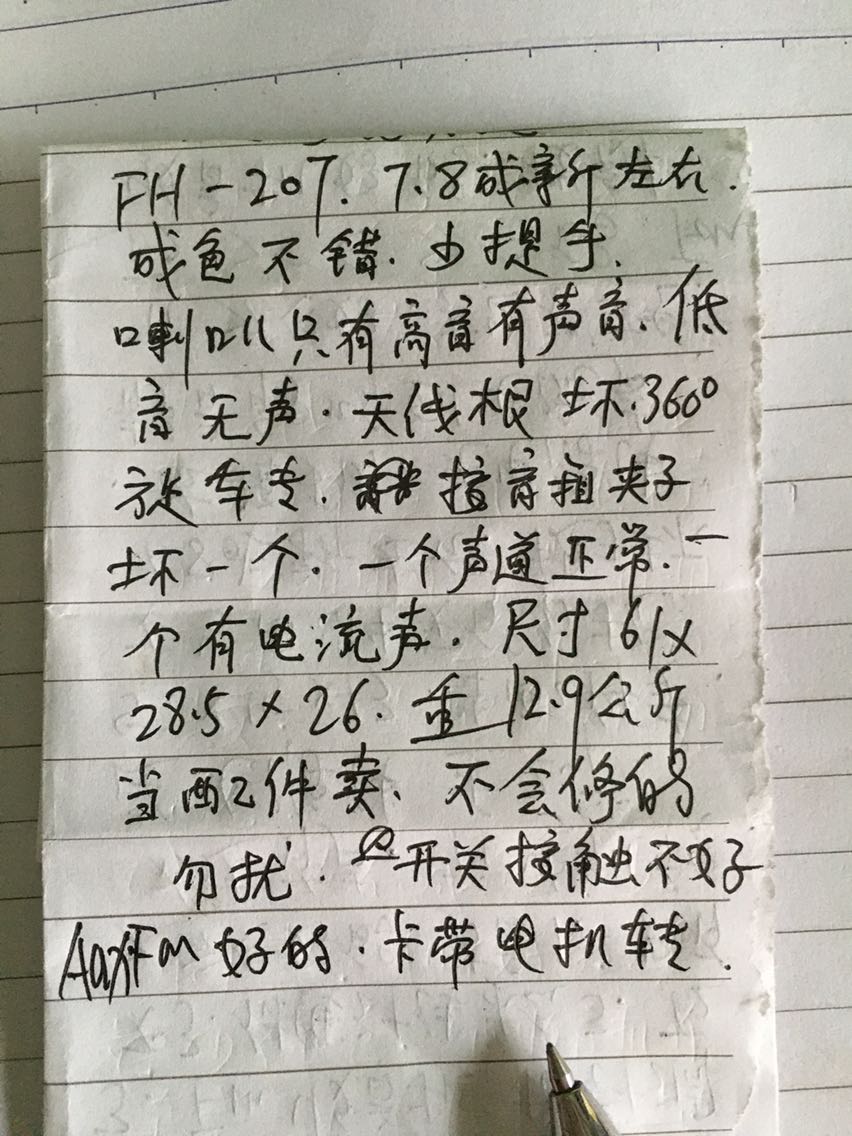 FH-207. 7.8成新左右.
成色不错.少提手.
喇叭只有高音有声音.低
音无声.天线根坏.360°
旋转. 接音箱夹子
坏一个.一个声道正常.一
个有电流声.尺寸61x
28.5×26.重12.9公斤
当配件卖.不会修的
勿扰.开关接触不好
Aax.Fm好的.卡带电机转.